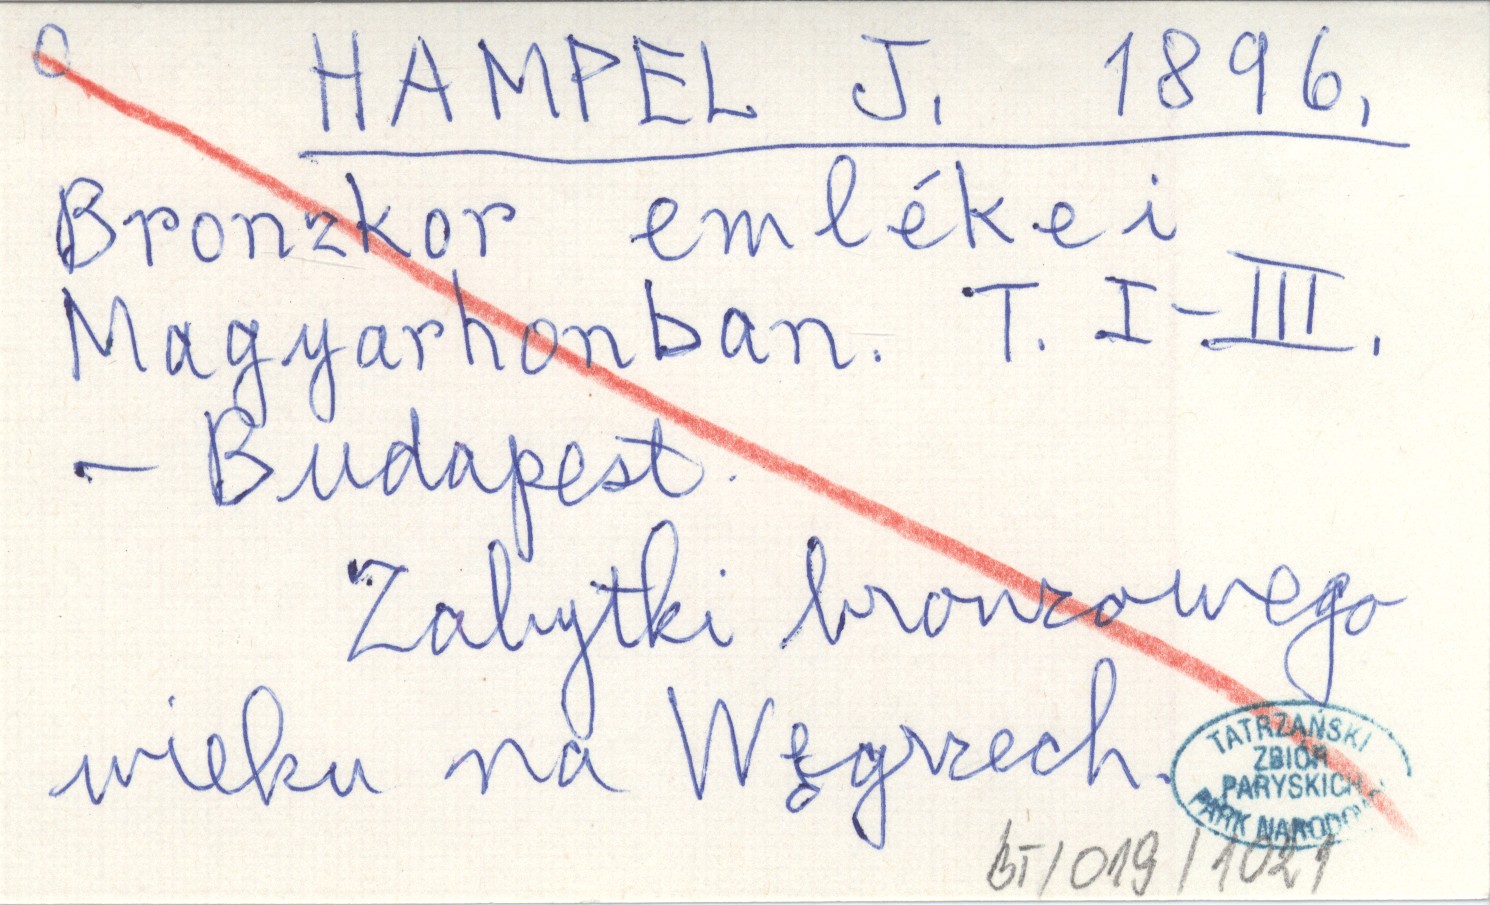 HAMPEL J. 1896.
Bronzkor emlékei
Magyarhonban. T. I-III.
- Budapest.
Zabytki bronzowego
wieku na Węgrzech.
TATRZAŃSKI
ZBIÓR
PARYSKICH
PARK NARODO
BT/019/1021